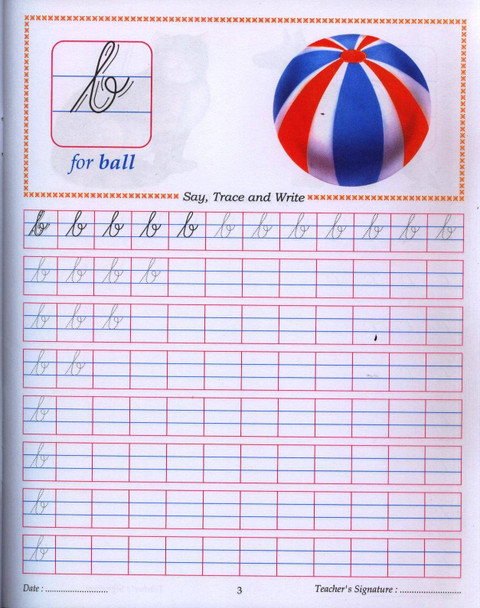 b
for ball
Say, Trace and Write
b b b b b b b b b b b b
b b b b
b b b
b b
b
b
b
b
Date : ..........................
3
Teacher's Signature : ..........................